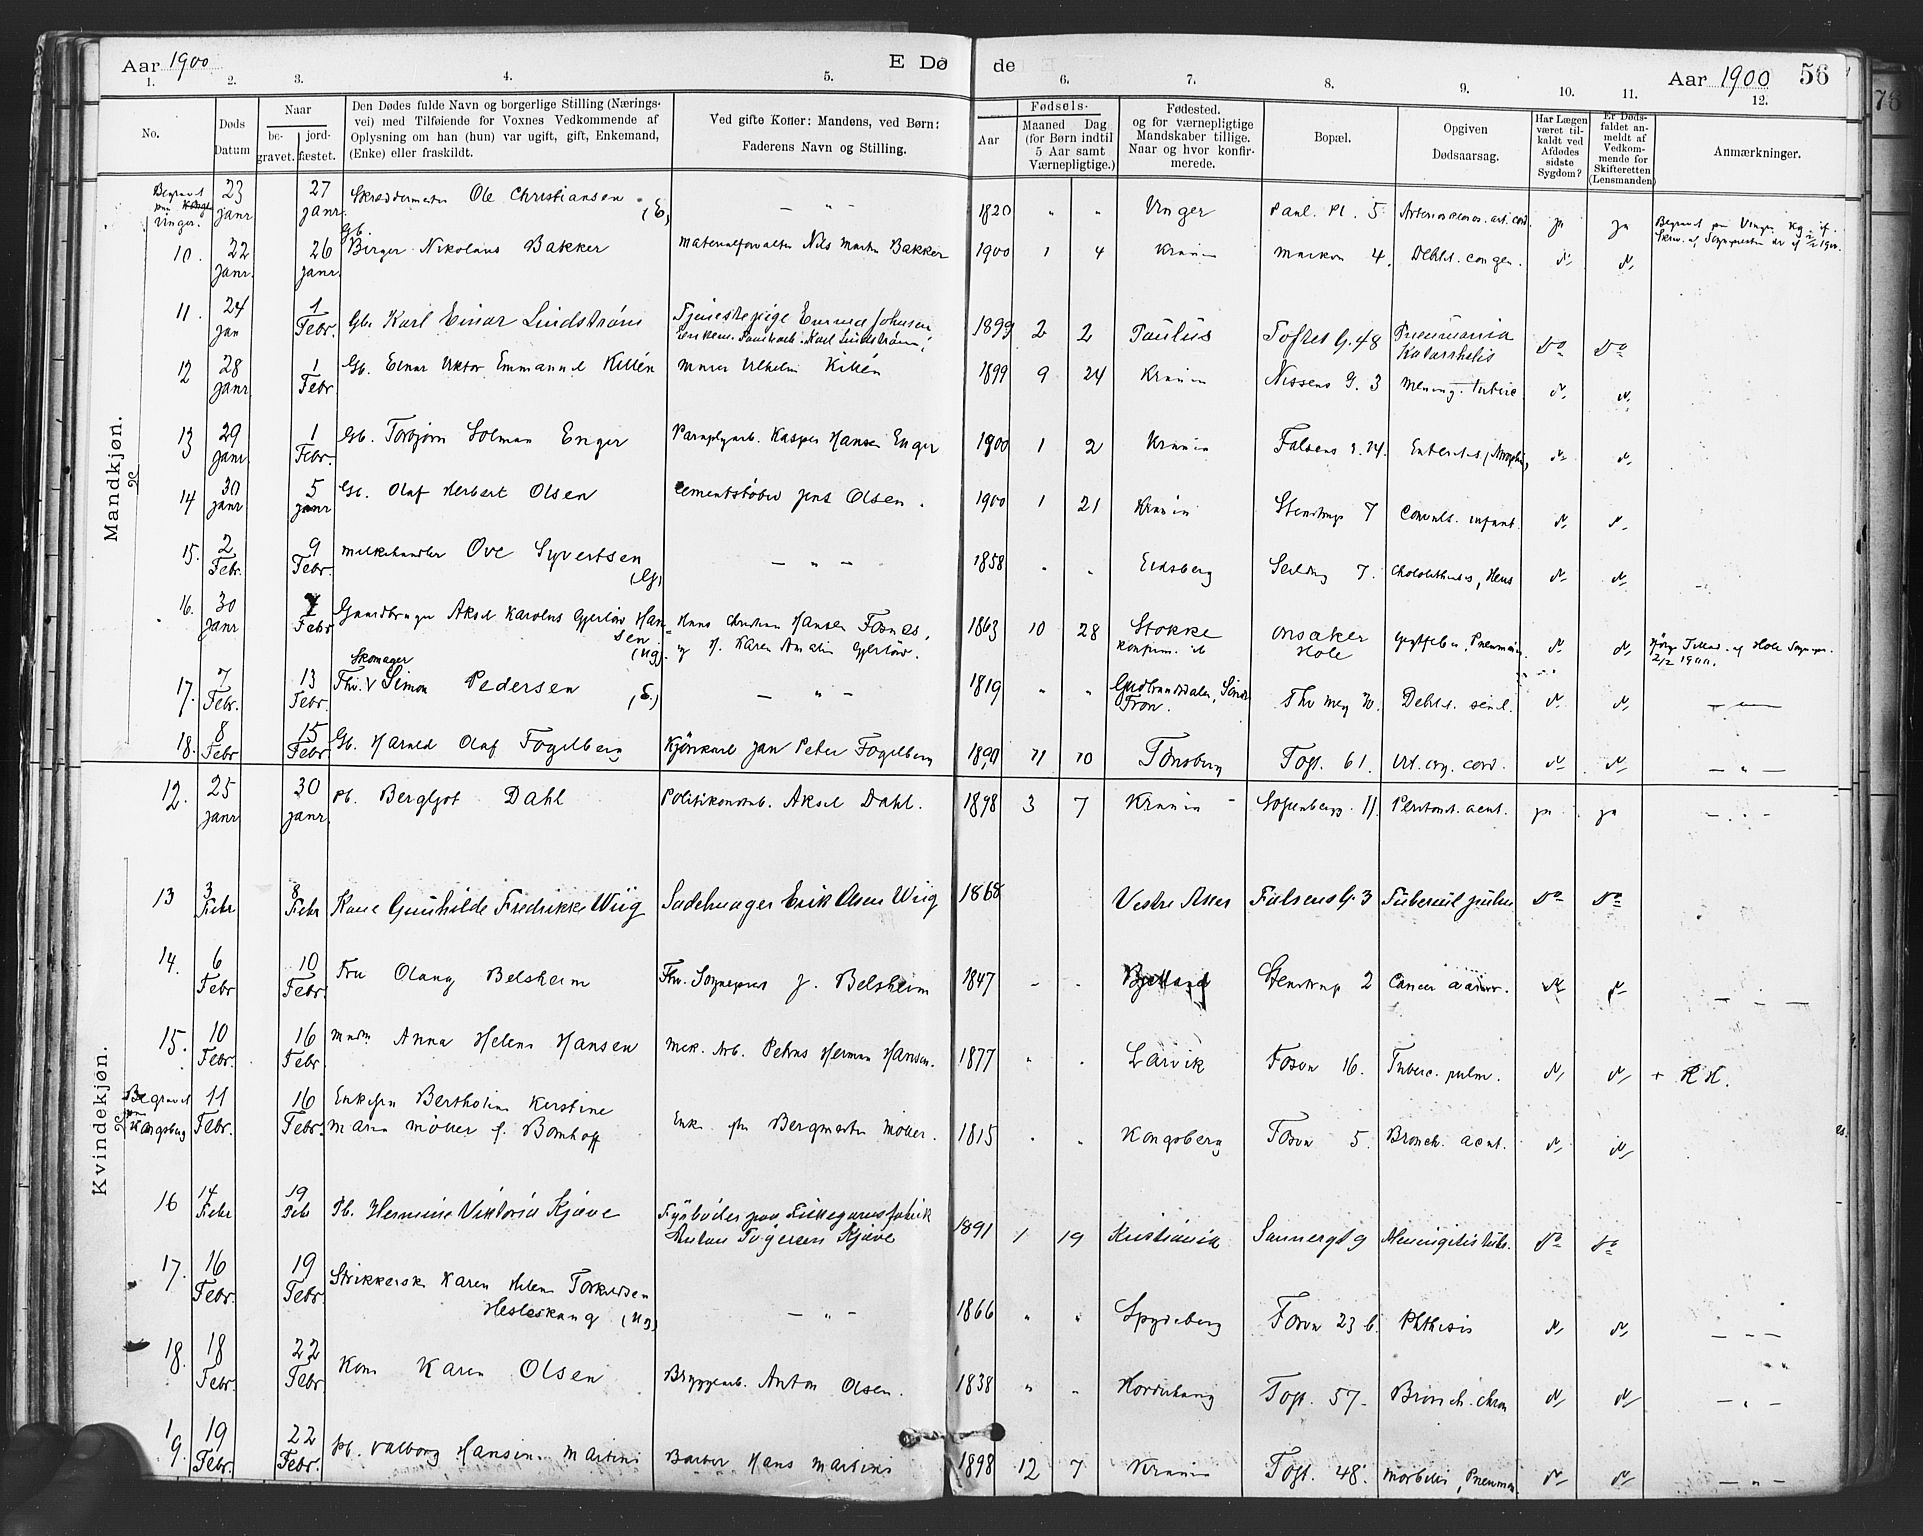 Aar 1900
E Dø
de
Aar 1900 56
76
1. 2. 3. 4. 5. 6. 7. 8. 9. 10. 11. 12.
No.
Døds Datum
Naar
be-gravet.
jord-fæstet.
Den Dødes fulde Navn og borgerlige Stilling (Nærings-
vei) med Tilføiende for Voxnes Vedkommende af
Oplysning om han (hun) var ugift, gift, Enkemand,
(Enke) eller fraskildt.
Ved gifte Koner: Mandens, ved Børn:
Faderens Navn og Stilling.
Fødsels-
Aar
Maaned Dag
(for Børn indtil
5 Aar samt
Værnepligtige.)
Fødested.
og for værnepligtige
Mandskaber tillige.
Naar og hvor konfir-
merede.
Bopæl.
Opgiven
Dødsaarsag.
Har Lægen
været til-
kaldt ved
Afdødes
sidste
Sygdom?
Er Døds-
faldet an-
meldt af
Vedkom-
mende for
Skifteretten
(Lensmanden)
Anmærkninger.
Mandkjøn.
Begravet paa Vinger. 23 Janr 27 Janr. Skræddermester Ole Christiansen (E) — " — 1820 " " Vinger Paul. Pl. 5 ja ja Begravet paa Vinger Kg.
10. 22 Janr. 26 Janr. Gb. Birger Nikolaus Bakker Materialforvalter Nils Martin Bakker 1900 1 4 Krania Markv 4. Debil. congen. d° d°
11. 24 Jan 1 Febr. Gb. Karl Einar Lindstrøm Tjenestepige Emma Johnsen, Karl Lindstrøm 1899 2 2 Paulus Toftes G. 48 Pneumonia Katarrhalis D° D°
12 28 Janr. 1 Febr Gb. Einar Viktor Emmanuel Killén Murer Vilhelm Killén 1899 9 24 Krania Nissens G. 3 Mening. tuberc. d° d°
13 29 Janr. 1 Febr. Gb. Torbjørn Solman Enger Kasper Hansen Enger 1900 1 2 Krania Falsens g. 14. d° d°
14 30 Janr 5 Janr Gb. Olaf Herbert Olsen Cementstøber Jens Olsen. 1900 1 21 Krania Stenstrup 7 Convuls. infant. d° d°
15. 2 Febr. 9 Febr. Melkehandler Ove Syvertsen (G) — " — 1858 " " Eidsberg Seildug 7. d° d°
16. 30 Janr 7 Febr Gaardbruger Aksel Karolus Gjerløv Hansen (ug). Hans Christian Hansen Fosnes, og H. Karen Amalia Gjerløv. 1863 10 28 Stokke konfirm. ib Onsaker Hole d° d° 2/2 1900.
17. 7 Febr. 13 Febr. Fhv. Skomager Simon Pedersen (E) — " — 1819 " " Gudbrandsdalen, Søndre Fron. Thv Mey 10. Debil. senil. d° d° — " —
18. 8 Febr 15 Febr. Gb. Harald Olaf Fogelberg Kjørekarl Jan Peter Fogelberg 1890 11 10 Tønsberg Toft. 61. Vit. org. cord. d° d° — " —
Kvindekjøn.
12. 25 Janr 30 Janr. Pb. Bergljot Dahl Politikonstb. Aksel Dahl. 1898 3 7 Krania Sofienberg. 11. Peritonit. acut. ja ja — " —
13 3 Febr 8 Febr Kone Gunhilde Fredrikke Wiig Sadelmager Erik Olsen Wiig 1868 Vestre Aker Falsens G. 3 Tubercul pulm D° D°
14. 6 Febr 10 Febr. Fru Olang Belsheim Fhv. Sogneprest J. Belsheim 1847 " " Bjelland Stenstrup 2 Cancer d° d° — " —
15. 10 Febr. 16 Febr Madm Anna Helene Hansen Mek. Arb. Petrus Herman Hansen. 1877 " " Larvik Fossv 16. Tuberc. pulm. d° d° + R H.
Begravet paa Kongsberg 11 Febr. 16 Febr. Enkefru Bertholine Kirstine Maria Møller f. Bomhoff Enke efter Bergmester Møller. 1815 " " Kongsberg Fossv 5. Bronch. acut. d° d°
16 14 Febr 19 Feb Pb. Hermine Viktoria Kjave Fyrbøder paa Lillegarnsfabrik 1891 1 19 Kristiania Sannergt 9 Meningitis tub. D° D°
17. 16 Febr. 19 Febr. Strikkerske Karen Helene Torkildsen Hesleskaug (ug) — " — 1866 " " Spydeberg Fossv 23 b. Phthisis d° d° — " —
18. 18 Febr. 22 Febr. Kone Karen Olsen Bryggearb. Anton Olsen. 1838 " " Toft. 57. Bronch. chron d° d° — " —
19. 19 Febr. 22 Febr. Pb. Valborg Hansine Martins Barber Hans Martins 1898 12 7 Krania Toft. 48. Morbilli, Pneumon. d° d° — " —